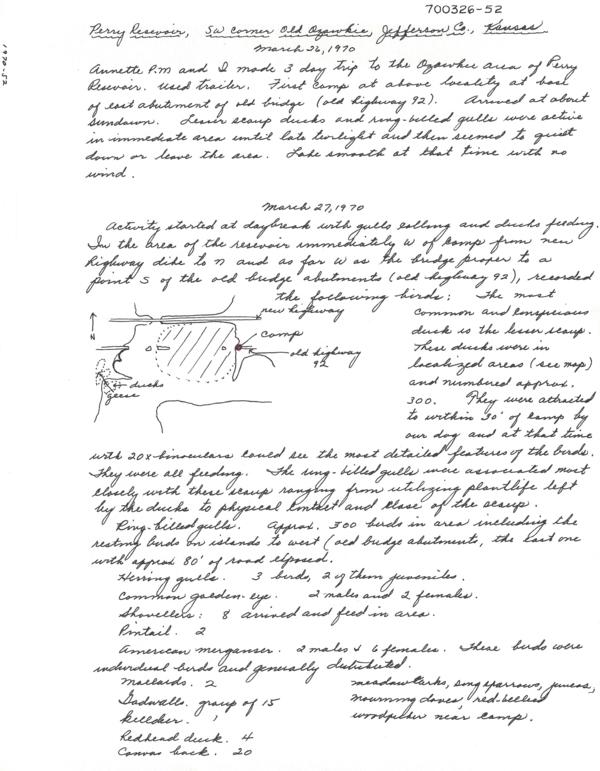 700326-52
1970-52
Perry Resevoir, SW corner Old Ozawkie, Jefferson Co., Kansas
March 26, 1970
Annette P.M and I made 3 day trip to the Ozawkie area of Perry
Resevoir. Used trailer. First camp at above locality at base
of east abutment of old bridge (old highway 92). Arrived at about
sundown. Lesser scaup ducks and ring-billed gulls were active
in immediate area until late twilight and then seemed to quiet
down or leave the area. Lake smooth at that time with no
wind.
March 27, 1970
Activity started at daybreak with gulls calling and ducks feeding.
In the area of the reservoir immediately W of camp from new
highway dike to N and as far W as the bridge proper to a
point S of the old bridge abutments (old highway 92), recorded
the following birds: The most
common and conspicious
duck is the lesser scaup.
These ducks were in
localized areas (see map)
and numbered approx.
300. They were attracted
to within 30' of camp by
our dog and at that time
N
new highway
camp
old highway
92
ducks
geese
with 20x binoculars could see the most detailed features of the birds.
They were all feeding. The ring-billed gulls were associated most
closely with these scaup ranging from utilizing plantlife left
by the ducks to physical contact and close of the scaup.
Ring-billed gulls. Approx. 300 birds in area including the
resting birds on islands to west (old bridge abutments, the east one
with approx 80' of road exposed.
Herring gulls. 3 birds, 2 of them juveniles.
Common golden-eye. 2 males and 2 females.
Shovellers: 8 arrived and feed in area.
Pintail. 2
American merganser. 2 males & 6 females. These birds were
individual birds and generally distributed.
Mallards. 2
Gadwalls. group of 15
Killdeer. 1
Redhead duck. 4
Canvas back. 20
meadowlarks, song sparrows, juncos,
mourning doves, red-bellied
woodpecker near camp.